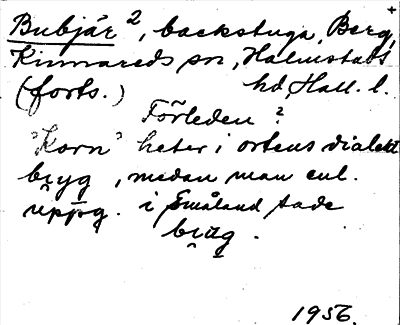 +
Bubjär 2, backstuga, Berg,
Kinnareds sn, Halmstads
(forts.) hd, Hall. l.
Förleden?
"Korn" heter i ortens dialekt
bryg, medan man enl.
uppg. i Småland sade
.
1956.